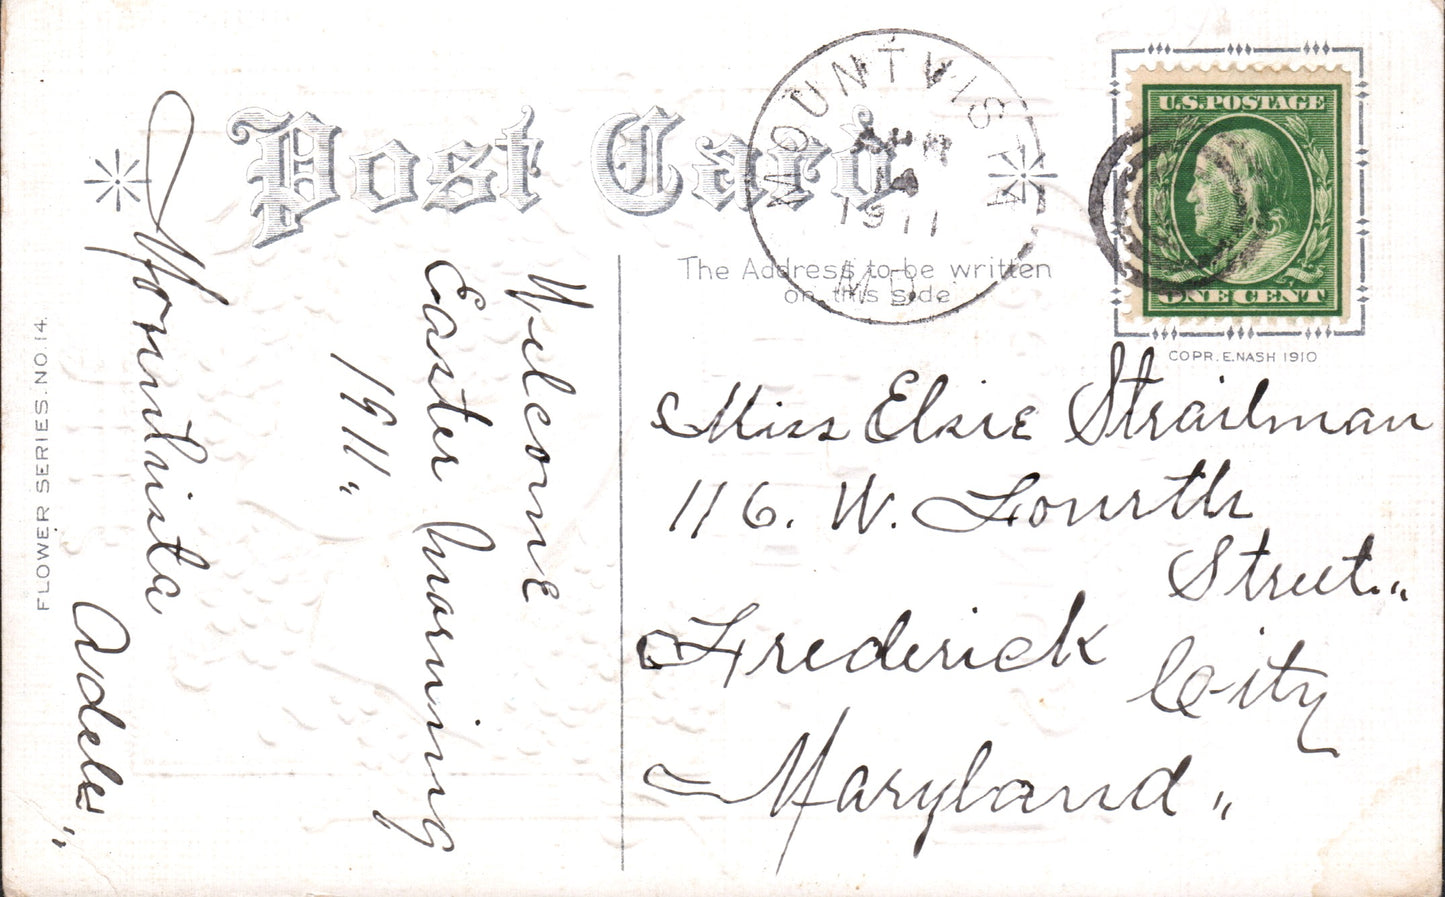 Post Card
MOUNTVISTA
APR
4
1911
MD.
U.S. POSTAGE
ONE CENT
The Address to be written
on this side
COPR. E. NASH 1910
FLOWER SERIES. NO. 14.
Welcome
Easter morning
1911„
Adele„
Miss Elsie Strailman
116. W. Fourth
Street„
Frederick City
Maryland„